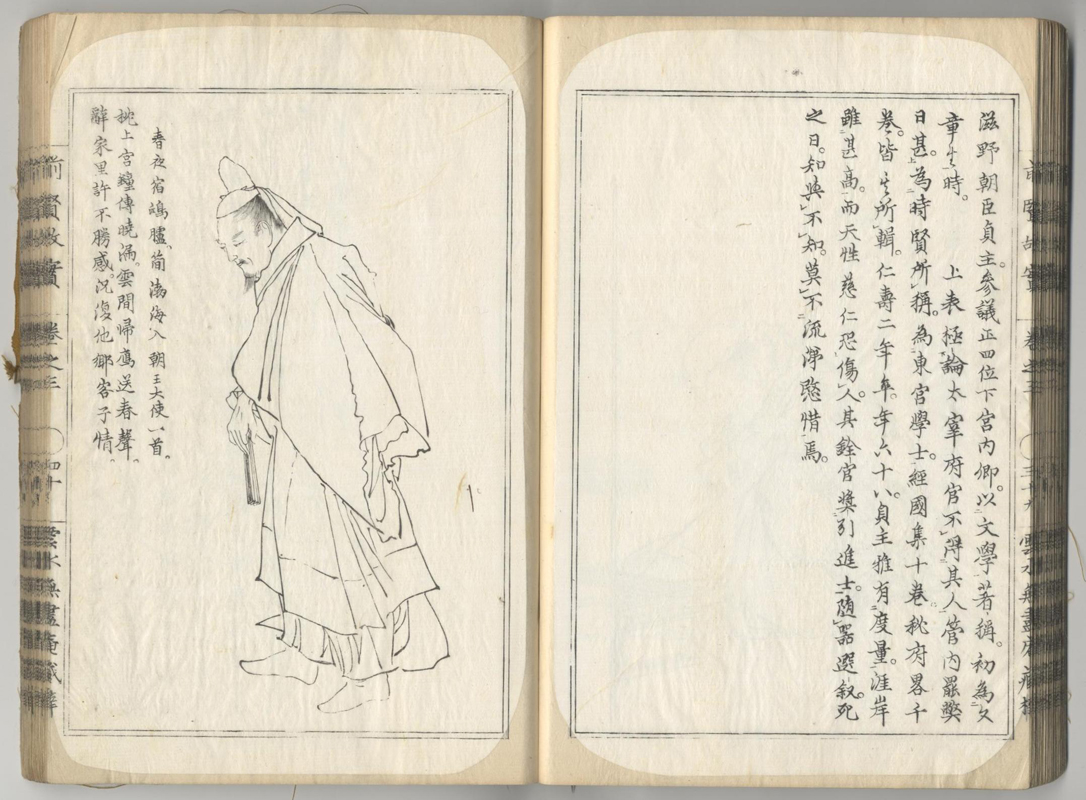 滋野朝臣貞主。參議正四位下宮内卿。以文學著稱。初為文
章生時。　上表極論太宰府官不得其人管内罷獘
日甚。為時賢所稱。為東宮學士。經國集十卷秘府畧千
卷。皆其所輯。仁壽二年卒。年六十八。貞主雅有度量。涯岸
雖甚高。而天性慈仁。恐傷人。其銓官奬引進士。随器選叙。死
之日。知與不知。莫不流涕愍惜焉。
前賢故實
卷之三
三十九
雲水無盡庵藏梓
春夜宿鴻臚。簡渤海入朝王大使一首。
枕上宮鐘傳曉漏。雲間帰鴈送春聲。
辭家里許不勝感。況復他鄉客子情。
前賢故實
卷之三
四十
雲水無盡庵藏梓